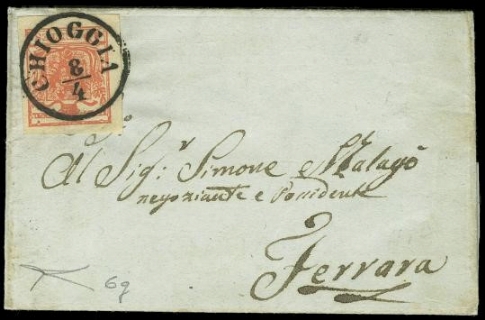 CHIOGGIA
8/4
Al Sig.r Simone Malagò
negoziante e Possidente
Ferrara
69